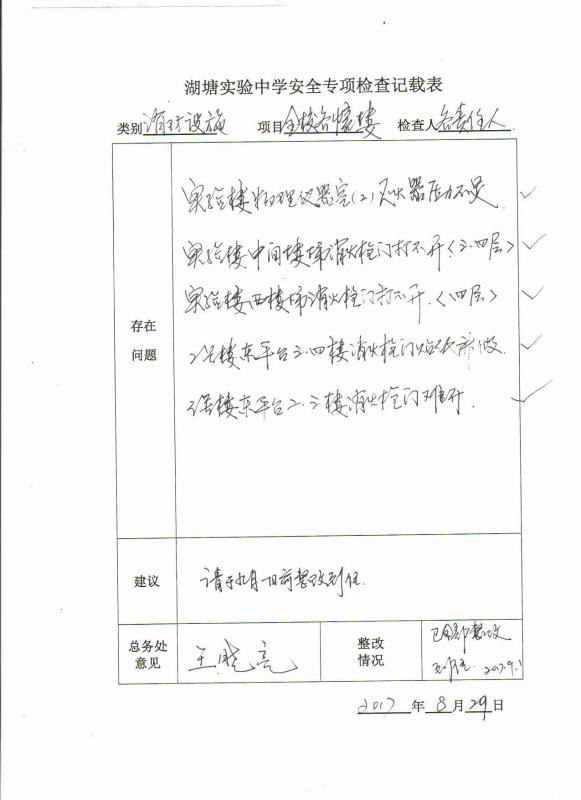 湖塘实验中学安全专项检查记载表
类别 消防设施 项目 全校各幢楼 检查人 各责任人
存在问题
实验楼物理仪器室(2)灭火器压力不足 ✓
实验楼中间楼梯消火栓门打不开〈三.四层〉 ✓
实验楼西楼梯消火栓门打不开.〈四层〉 ✓
2号楼东平台三.四楼消火栓门 ✓
2号楼东平台二.三楼消火栓门难开. ✓
建议
请于九月一日前整改到位.
总务处意见
王晓亮
整改情况
已全部整改
到位. 2017.9.1
2017 年 8 月 29 日